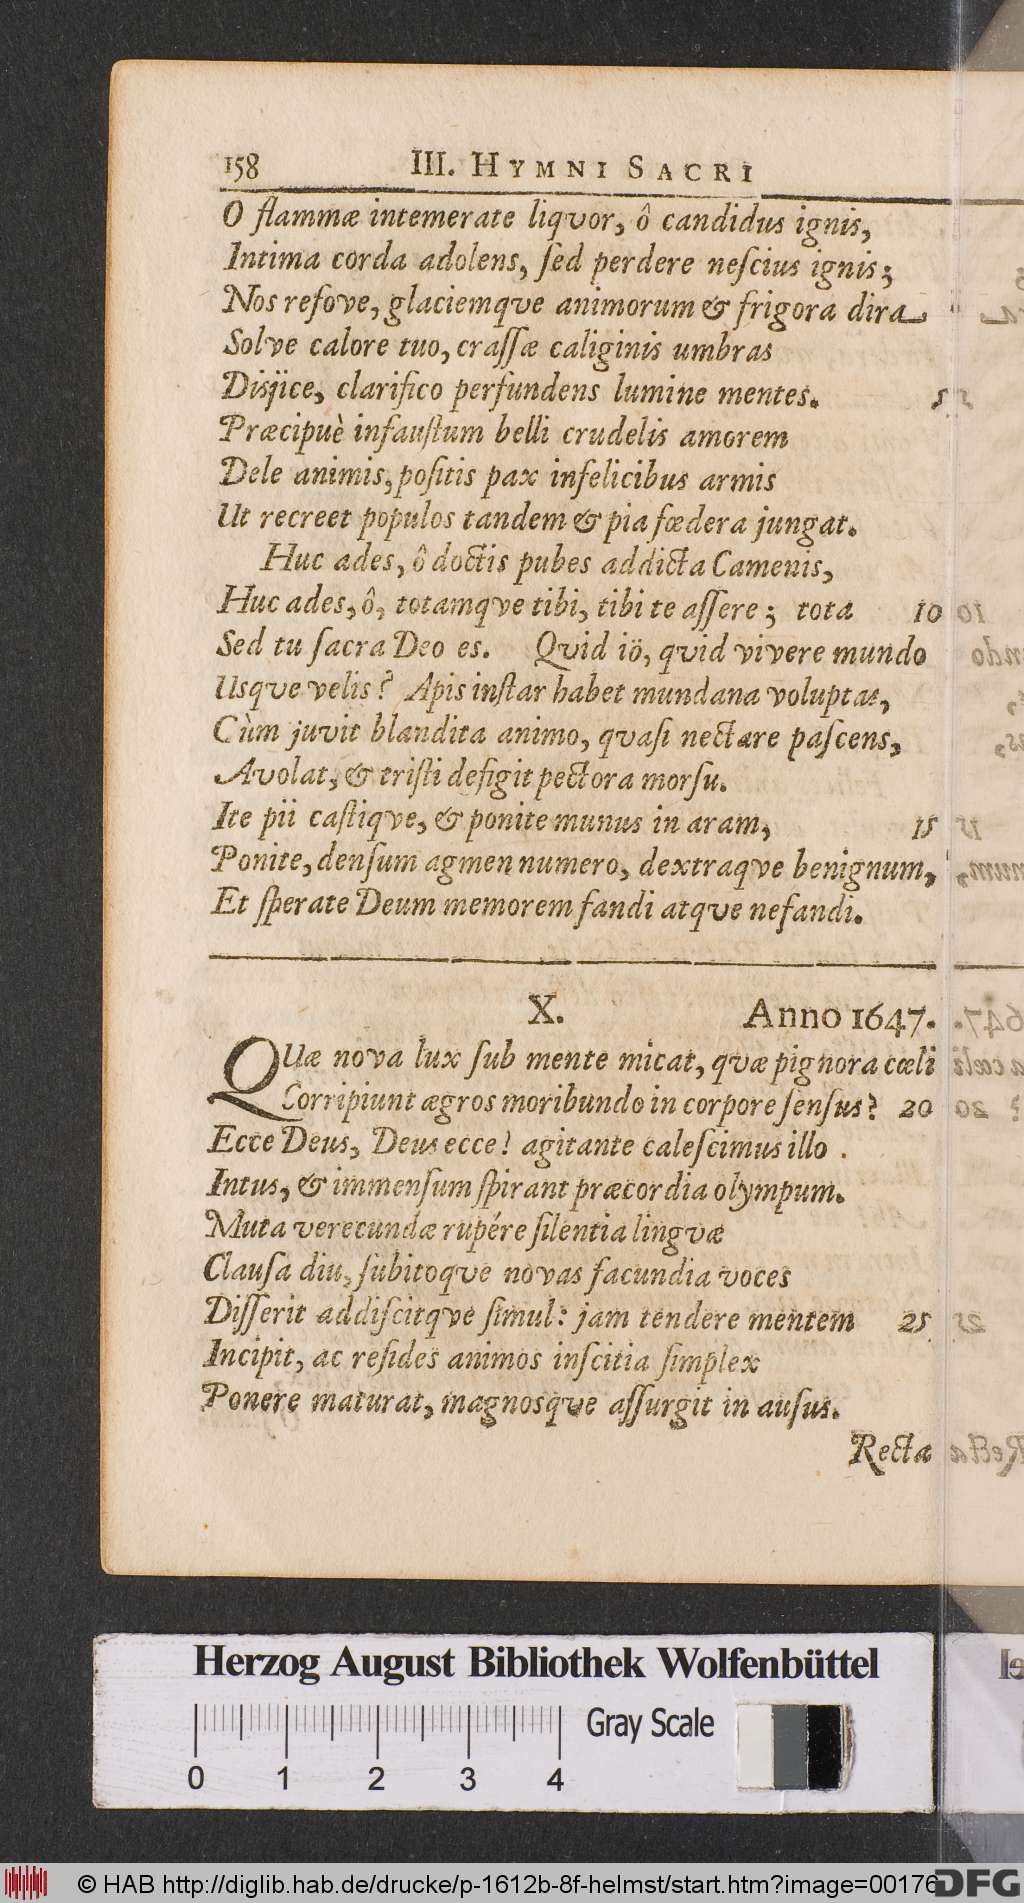 158 III. HYMNI SACRI
O flammæ intemerate liqvor, ô candidus ignis,
Intima corda adolens, ſed perdere neſcius ignis;
Nos refove, glaciemqve animorum & frigora dira
Solve calore tuo, craſſæ caliginis umbras
Disjice, clarifico perfundens lumine mentes. 5
Præcipuè infauſtum belli crudelis amorem
Dele animis, poſitis pax infelicibus armis
Ut recreet populos tandem & pia fœdera jungat.
Huc ades, ô doctis pubes addicta Camenis,
Huc ades, ô, totamqve tibi, tibi te aſſere; tota 10
Sed tu ſacra Deo es. Qvid iö, qvid vivere mundo
Usqve velis? Apis inſtar habet mundana voluptas,
Cùm juvit blandita animo, qvaſi nectare paſcens,
Avolat, & triſti defigit pectora morſu.
Ite pii caſtiqve, & ponite munus in aram, 15
Ponite, denſum agmen numero, dextraqve benignum,
Et ſperate Deum memorem fandi atqve nefandi.
X. Anno 1647.
QUæ nova lux ſub mente micat, qvæ pignora cœli
Corripiunt ægros moribundo in corpore ſenſus? 20
Ecce Deus, Deus ecce! agitante caleſcimus illo.
Intus, & immenſum ſpirant præcordia olympum.
Muta verecundæ rupére ſilentia lingvæ
Clauſa diu, ſubitoqve novas facundia voces
Diſſerit addiſcitqve ſimul: jam tendere mentem 25
Incipit, ac reſides animos inſcitia ſimplex
Ponere maturat, magnosqve aſſurgit in auſus.
Recta
Herzog August Bibliothek Wolfenbüttel
Gray Scale
0 1 2 3 4
© HAB http://diglib.hab.de/drucke/p-1612b-8f-helmst/start.htm?image=00176 DFG